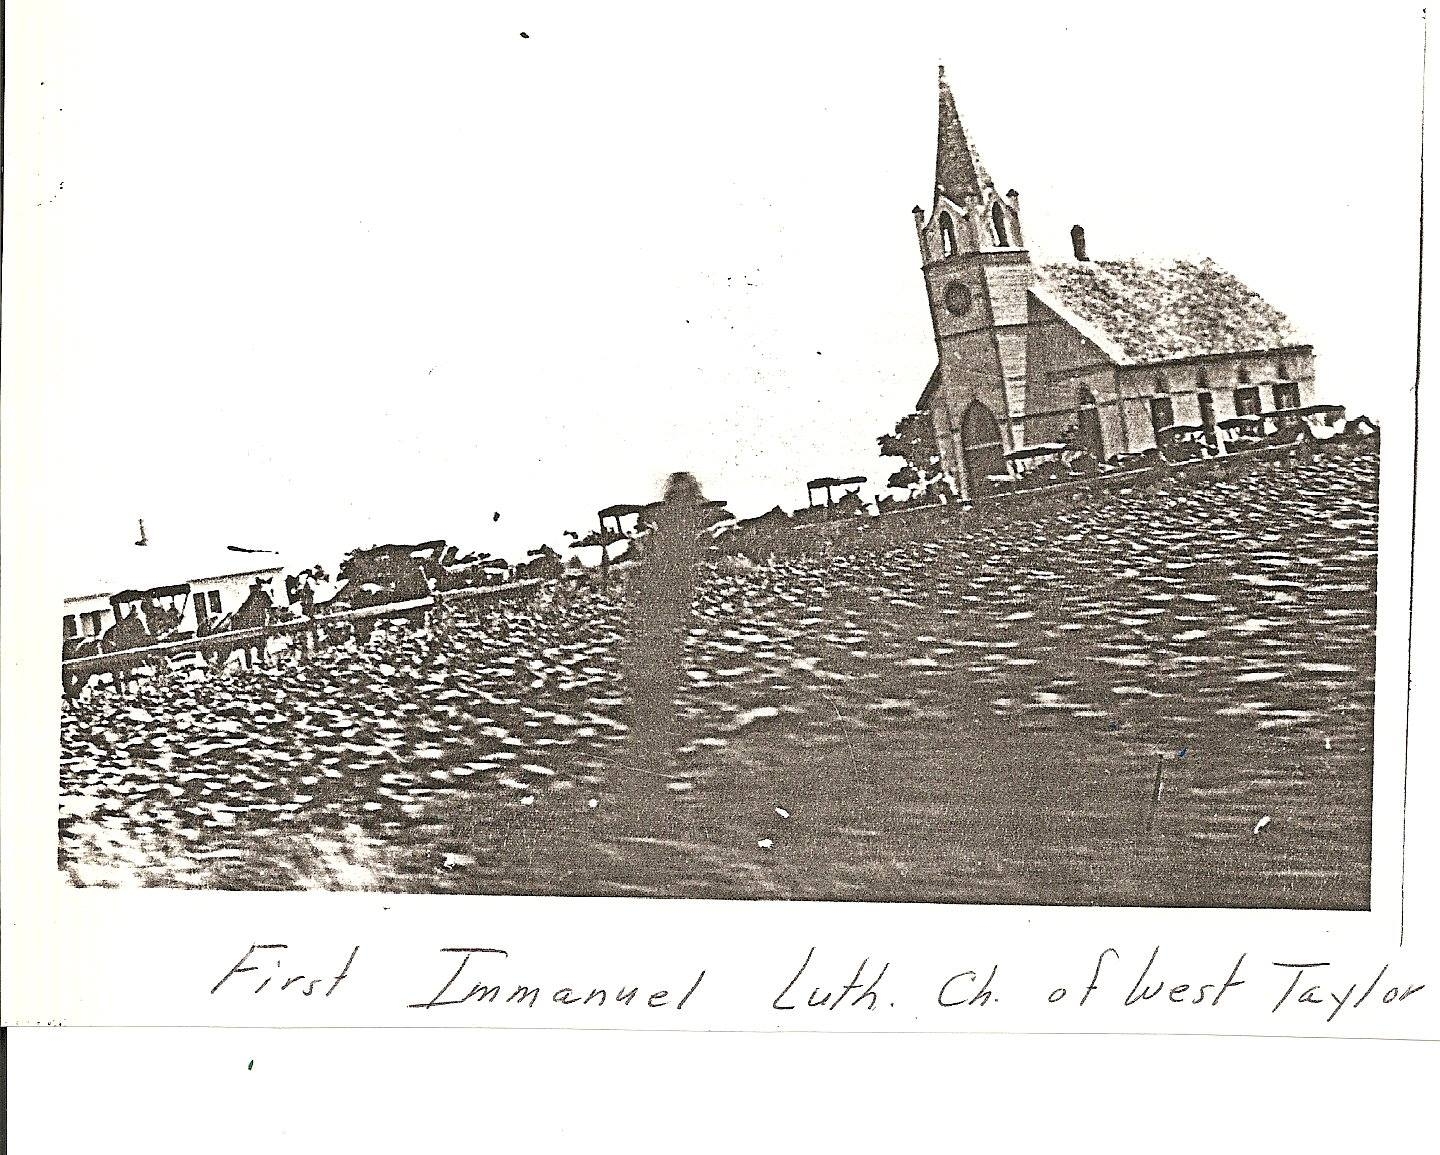 First Immanuel Luth. Ch. of West Taylor